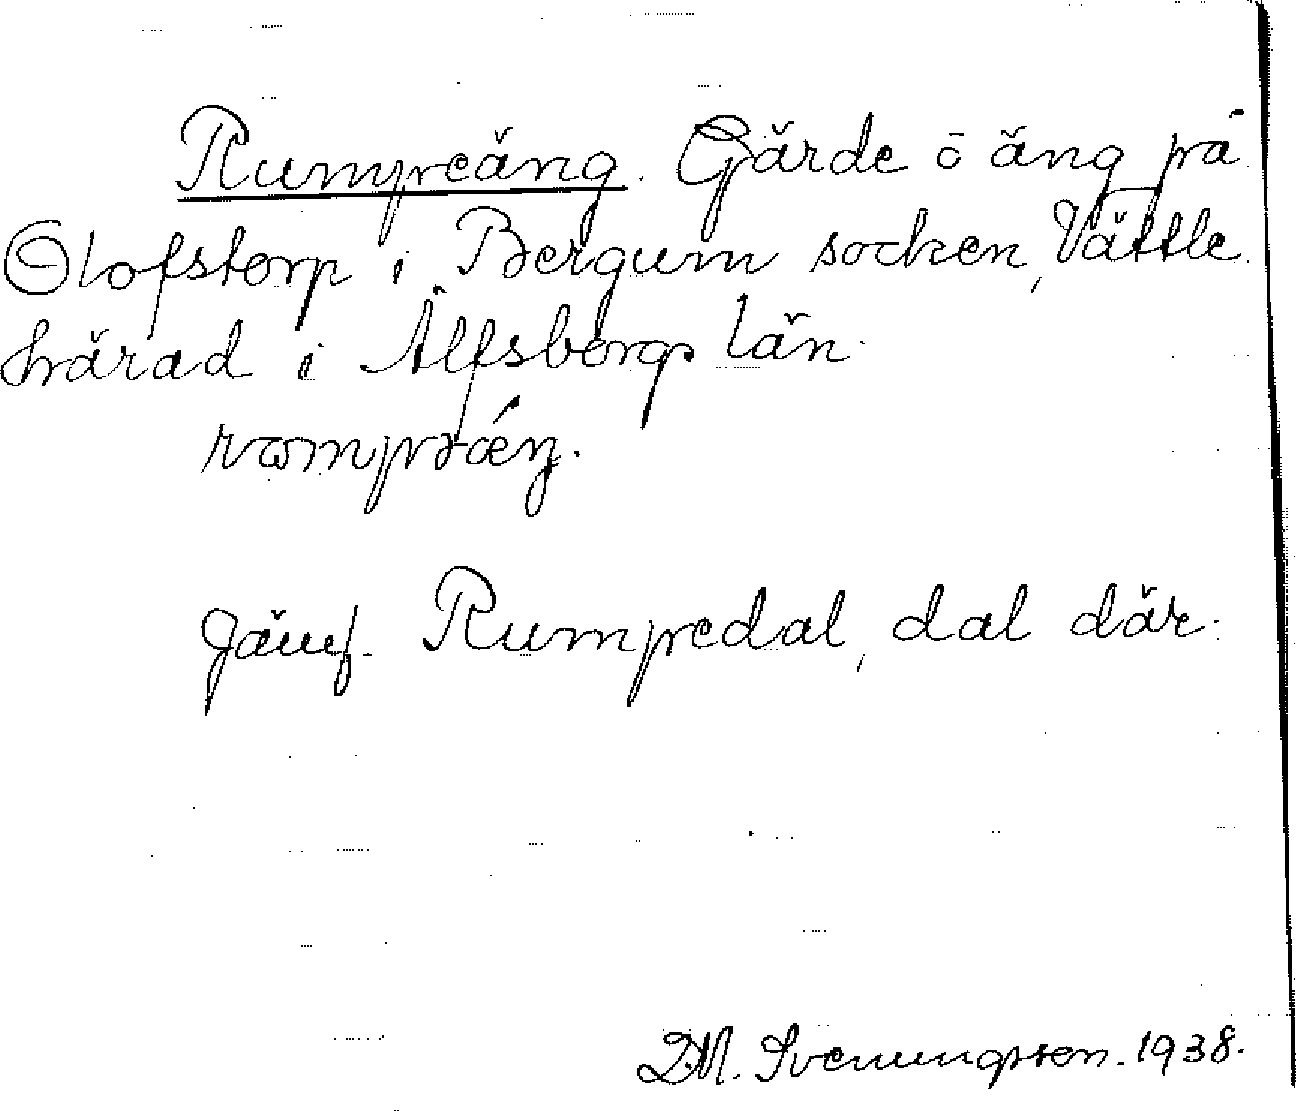 Rumpeäng. Gärde ō äng på
Olofstorp i Bergum socken, Vättle
härad i Älfsborgs län.
Jämf. Rumpedal, dal där.
D.M. Svenungsson. 1938.